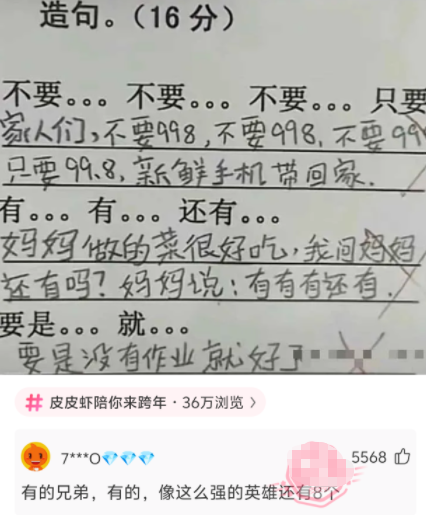 造句。(16分)
不要。。。不要。。。不要。。。只要
家人们,不要998,不要998,不要99
只要99.8,新鲜手机带回家.
有。。。有。。。还有。。。
妈妈做的菜很好吃,我问妈妈
还有吗?妈妈说:有有有还有.
要是。。。就。。。
要是没有作业就好了
# 皮皮虾陪你来跨年·36万浏览 >
7***O💎💎💎 5568
有的兄弟,有的,像这么强的英雄还有8个